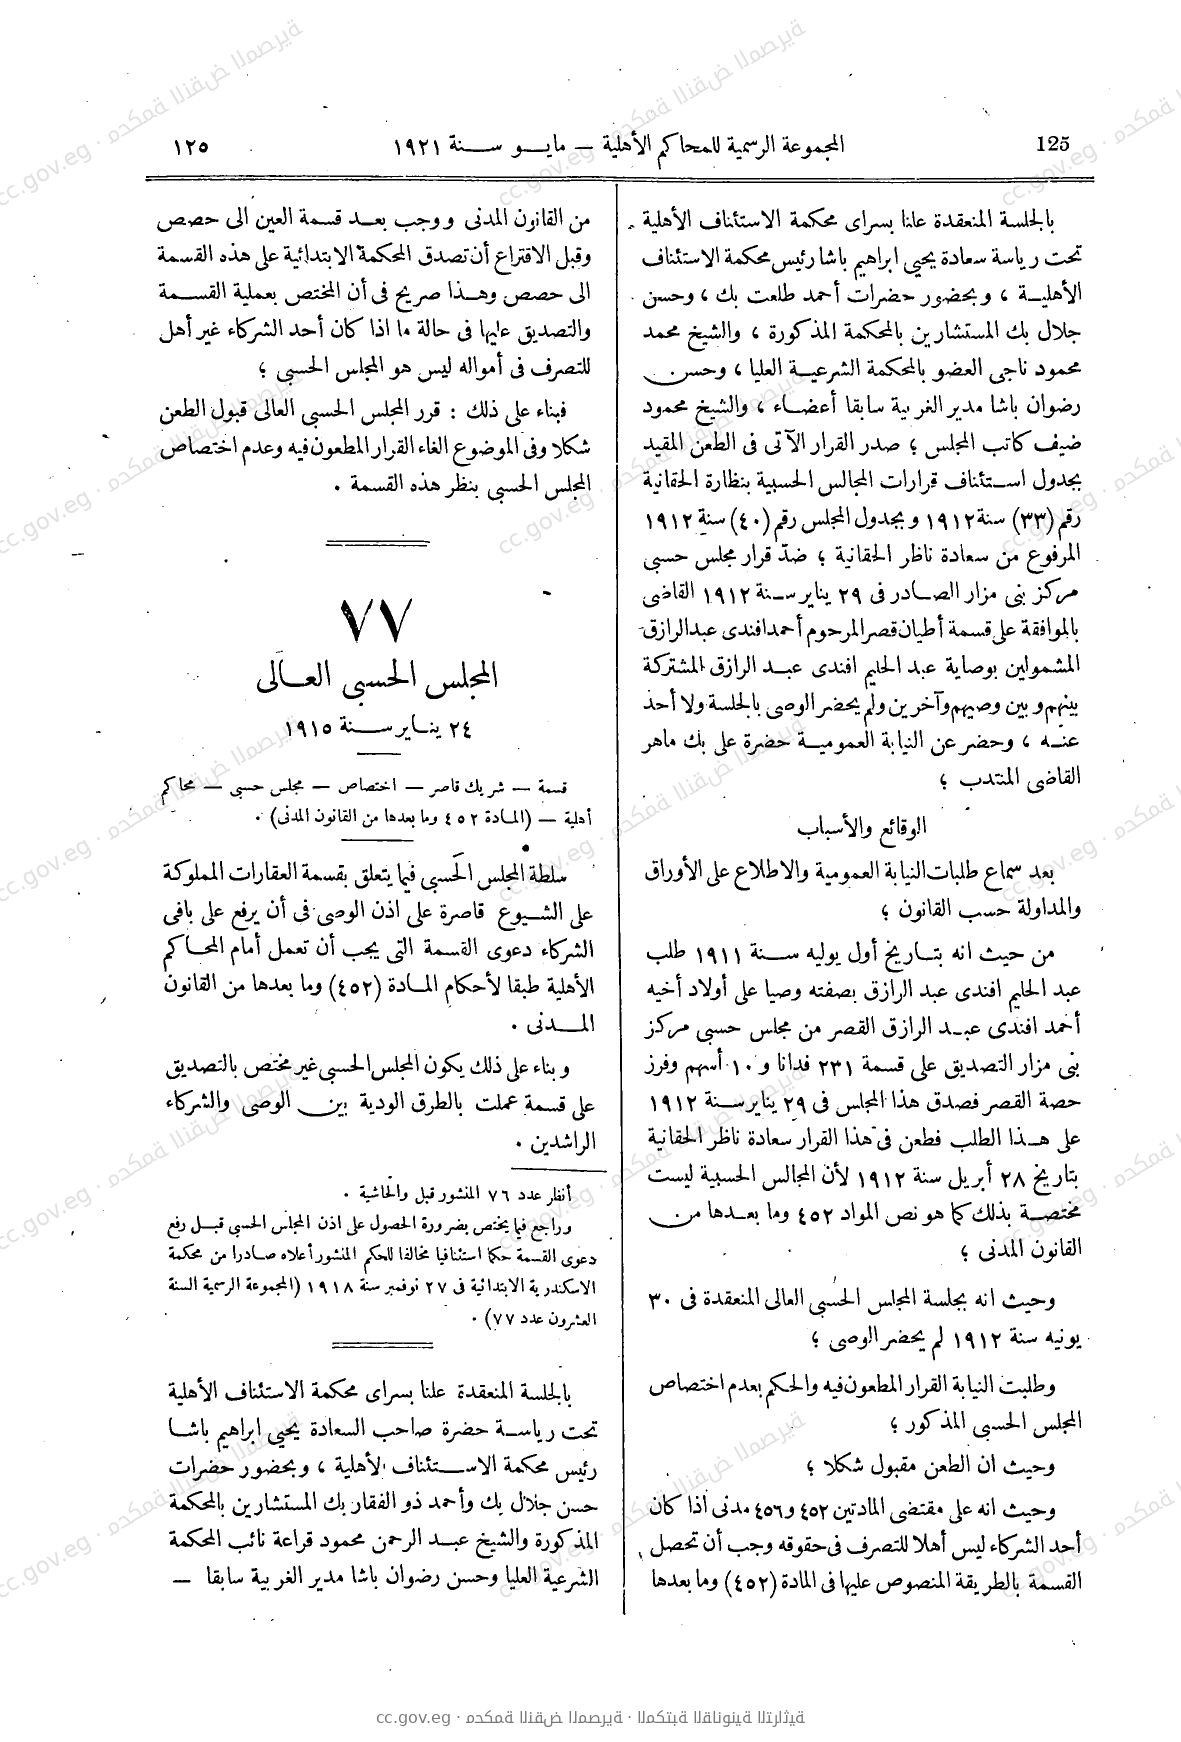 125
المجموعة الرسمية للمحاكم الأهلية – مايو سنة ١٩٢١
١٢٥
بالجلسة المنعقدة علنا بسراى محكمة الاستئناف الأهلية
تحت رياسة سعادة يحيى ابراهيم باشا رئيس محكمة الاستئناف
الأهلية ، وبحضور حضرات أحمد طلعت بك ، وحسن
جلال بك المستشارين بالمحكمة المذكورة ، والشيخ محمد
محمود ناجى العضو بالمحكمة الشرعية العليا ، وحسن
رضوان باشا مدير الغربية سابقا أعضاء ، والشيخ محمود
ضيف كاتب المجلس ؛ صدر القرار الآتى فى الطعن المقيد
بجدول استئناف قرارات المجالس الحسبية بنظارة الحقانية
رقم (٣٣) سنة ١٩١٢ وبجدول المجلس رقم (٤٠) سنة ١٩١٢
المرفوع من سعادة ناظر الحقانية ؛ ضدّ قرار مجلس حسبى
مركز بنى مزار الصادر فى ٢٩ يناير سنة ١٩١٢ القاضى
بالموافقة على قسمة أطيان قصر المرحوم أحمد افندى عبد الرازق
المشمولين بوصاية عبد الحليم افندى عبد الرازق المشتركة
بينهم وبين وصيهم وآخرين ولم يحضر الوصى بالجلسة ولا أحد
عنه ، وحضر عن النيابة العمومية حضرة على بك ماهر
القاضى المنتدب ؛
الوقائع والأسباب
بعد سماع طلبات النيابة العمومية والاطلاع على الأوراق
والمداولة حسب القانون ؛
من حيث انه بتاريخ أول يوليه سنة ١٩١١ طلب
عبد الحليم افندى عبد الرازق بصفته وصيا على أولاد أخيه
أحمد افندى عبد الرازق القصر من مجلس حسبى مركز
بنى مزار التصديق على قسمة ٢٣١ فدانا و ١٠ أسهم وفرز
حصة القصر فصدق هذا المجلس فى ٢٩ يناير سنة ١٩١٢
على هذا الطلب فطعن فى هذا القرار سعادة ناظر الحقانية
بتاريخ ٢٨ أبريل سنة ١٩١٢ لأن المجالس الحسبية ليست
مختصة بذلك كما هو نص المواد ٤٥٢ وما بعدها من
القانون المدنى ؛
وحيث انه بجلسة المجلس الحسبى العالى المنعقدة فى ٣٠
يونيه سنة ١٩١٢ لم يحضر الوصى ؛
وطلبت النيابة القرار المطعون فيه والحكم بعدم اختصاص
المجلس الحسبى المذكور ؛
وحيث ان الطعن مقبول شكلا ؛
وحيث انه على مقتضى المادتين ٤٥٢ و ٤٥٦ مدنى اذا كان
أحد الشركاء ليس أهلا للتصرف فى حقوقه وجب أن تحصل
القسمة بالطريقة المنصوص عليها فى المادة (٤٥٢) وما بعدها
من القانون المدنى ووجب بعد قسمة العين الى حصص
وقبل الاقتراع أن تصدق المحكمة الابتدائية على هذه القسمة
الى حصص وهذا صريح فى أن المختص بعملية القسمة
والتصديق عليها فى حالة ما اذا كان أحد الشركاء غير أهل
للتصرف فى أمواله ليس هو المجلس الحسبى ؛
فبناء على ذلك : قرر المجلس الحسبى العالى قبول الطعن
شكلا وفى الموضوع الغاء القرار المطعون فيه وعدم اختصاص
المجلس الحسبى بنظر هذه القسمة .
٧٧
المجلس الحسبى العالى
٢٤ يناير سنة ١٩١٥
قسمة – شريك قاصر – اختصاص – مجلس حسبى – محاكم
أهلية – (المادة ٤٥٢ وما بعدها من القانون المدنى) .
سلطة المجلس الحسبى فيما يتعلق بقسمة العقارات المملوكة
على الشيوع قاصرة على اذن الوصى فى أن يرفع على باقى
الشركاء دعوى القسمة التى يجب أن تعمل أمام المحاكم
الأهلية طبقا لأحكام المادة (٤٥٢) وما بعدها من القانون
المدنى .
وبناء على ذلك يكون المجلس الحسبى غير مختص بالتصديق
على قسمة عملت بالطرق الودية بين الوصى والشركاء
الراشدين .
أنظر عدد ٧٦ المنشور قبل والحاشية .
وراجع فيما يختص بضرورة الحصول على اذن المجلس الحسبى قبل رفع
دعوى القسمة حكما استئنافيا مخالفا للحكم المنشور أعلاه صادرا من محكمة
الاسكندرية الابتدائية فى ٢٧ نوفمبر سنة ١٩١٨ (المجموعة الرسمية السنة
العشرون عدد ٧٧) .
بالجلسة المنعقدة علنا بسراى محكمة الاستئناف الأهلية
تحت رياسة حضرة صاحب السعادة يحيى ابراهيم باشا
رئيس محكمة الاستئناف الأهلية ، وبحضور حضرات
حسن جلال بك وأحمد ذو الفقار بك المستشارين بالمحكمة
المذكورة والشيخ عبد الرحمن محمود قراعة نائب المحكمة
الشرعية العليا وحسن رضوان باشا مدير الغربية سابقا –
cc.gov.eg · محكمة النقض المصرية · المكتبة القانونية التراثية